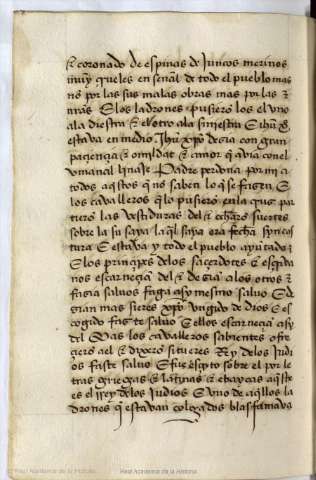 & coronado de espinas de Juncos merinos
muy crueles en señal de todo el pueblo mas
no por las sus malas obras mas por las
E los ladrones pusierō los el vno
ala diestra & el otro ala siniestra E
estaua en medio Jhū xpō dezia con gran
paçiençia & omildat & amor q̄ auia conel
vmanal linaje Padre perdona por mi a
todos aq̄stos q̄ no saben lo q̄ se fazen E
los caualleros q̄ lo pusierō en la cruz par
tierō las vestiduras del & echarō suertes
sobre la su saya la q̄l saya era fecha syn cos
tura E estaua y todo el pueblo ayuntado
E los prinçipes delos saçerdotes &
nos escarneçiā del & deziā alos otros &
fazia saluos faga asy mesmo saluo E
dezian mas si eres xpō vngido de dios & es
cogido faz te saluo E ellos escarneçiā asy
del Mas los caualleros sabientes ofre
çierō ael & dixerō si tu eres Rey delos Judi
os fazte saluo E fue escpto sobre el por le
tras griegas & latinas & ebraycas aq̄ste
es el rrey delos Judios E vno de aq̄llos la
drones q̄ estauan colgados blasfamaua
Real Academia de la Historia
© Real Academia de la Historia